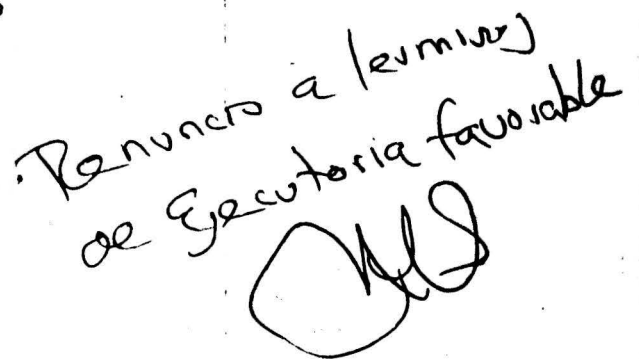 Renuncio a terminos
de Ejecutoria favorable